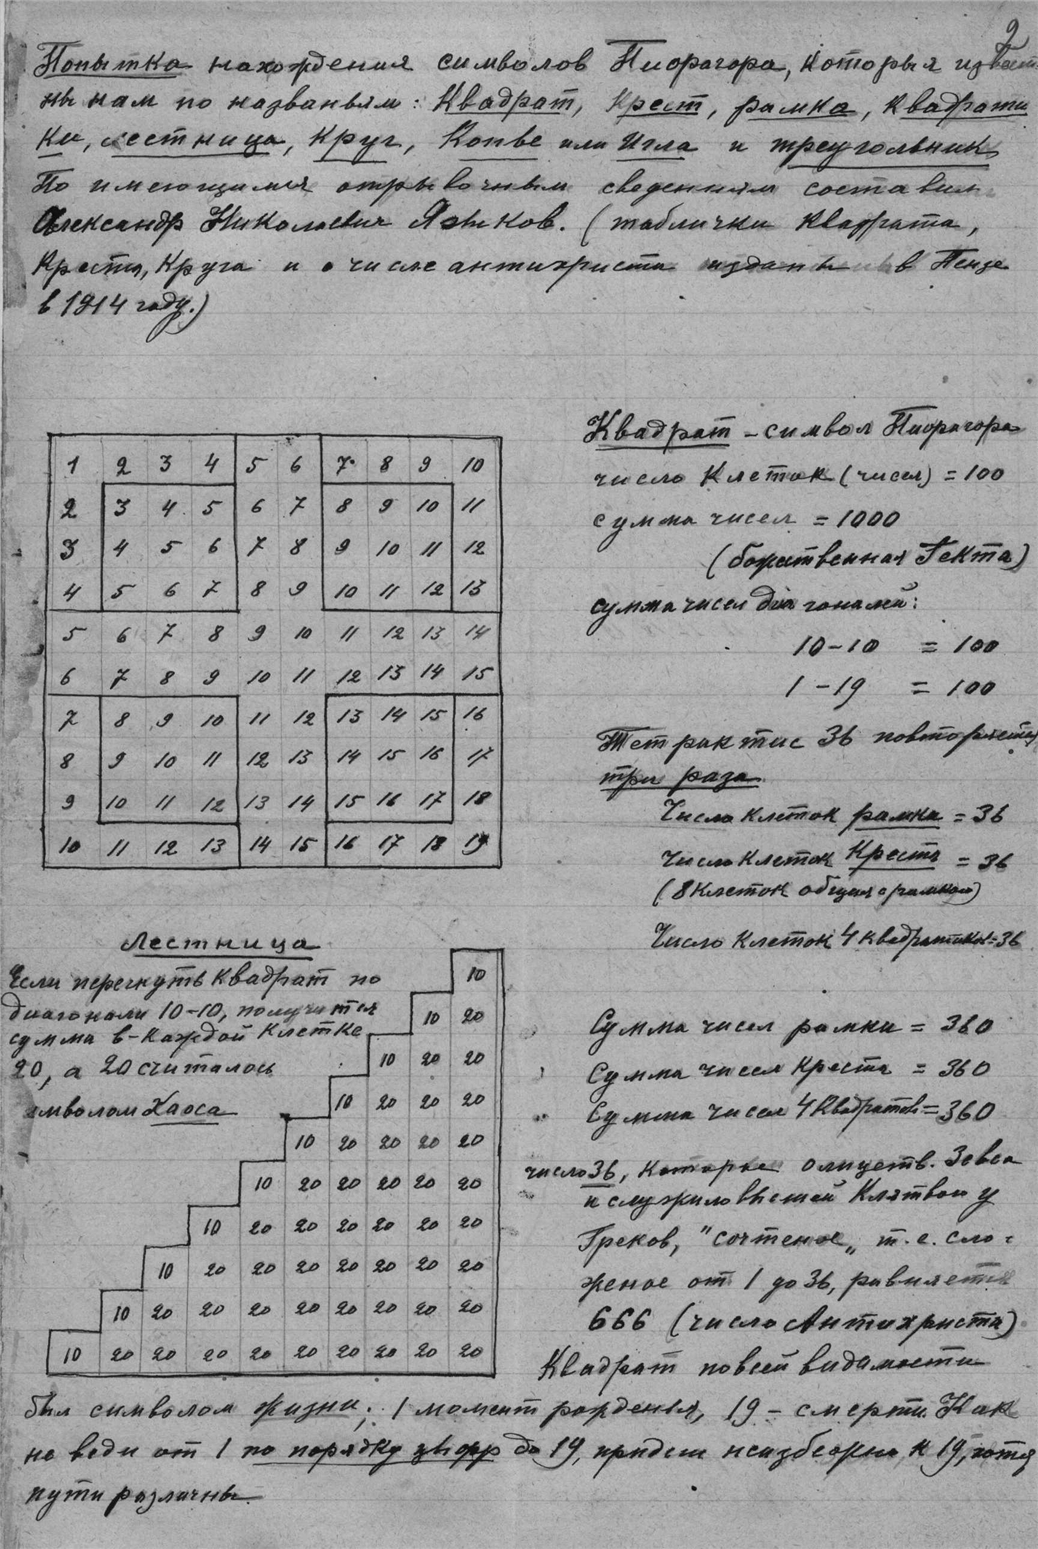 2
Попытка нахождения символов Пифагора, которыя извест
ны нам по названьям: Квадрат, Крест, рамка, квадрати
ки, лестница, круг, Копье или Игла и треугольник
По имеющимся отрывочным сведениям составил
Александр Николаевич Языков. (таблички Квадрата,
Креста, Круга и о числе антихриста изданы в Пензе
в 1914 году.)
1 2 3 4 5 6 7 8 9 10
2 3 4 5 6 7 8 9 10 11
3 4 5 6 7 8 9 10 11 12
4 5 6 7 8 9 10 11 12 13
5 6 7 8 9 10 11 12 13 14
6 7 8 9 10 11 12 13 14 15
7 8 9 10 11 12 13 14 15 16
8 9 10 11 12 13 14 15 16 17
9 10 11 12 13 14 15 16 17 18
10 11 12 13 14 15 16 17 18 19
Квадрат - символ Пифагора
число клеток (чисел) = 100
сумма чисел = 1000
(божественная Гекта)
сумма чисел диагоналей:
10-10 = 100
1-19 = 100
Тетрактис 36 повторяется
три раза
Число клеток рамки = 36
Число клеток Креста = 36
(8 клеток общия с рамкой)
Число клеток 4 квадратиков = 36
Лестница
Если перегнуть Квадрат по
диагонали 10-10, получится
сумма в каждой клетке
20, а 20 считалось
символом Хаоса
10
10 20
10 20 20
10 20 20 20
10 20 20 20 20
10 20 20 20 20 20
10 20 20 20 20 20 20
10 20 20 20 20 20 20 20
10 20 20 20 20 20 20 20 20
10 20 20 20 20 20 20 20 20 20
Сумма чисел рамки = 360
Сумма чисел Креста = 360
Сумма чисел 4 Квадратов = 360
число 36, которое олицетв. Зевса
и служило высшей Клятвой у
Греков, "сочтеное" т.е. сло-
женое от 1 до 36, равняется
666 (число Антихриста)
Квадрат по всей видимости
был символом жизни; 1 момент рожденья, 19 - смерти. Как
не веди от 1 по порядку цифр до 19, придеш неизбежно к 19, хотя
пути различны.